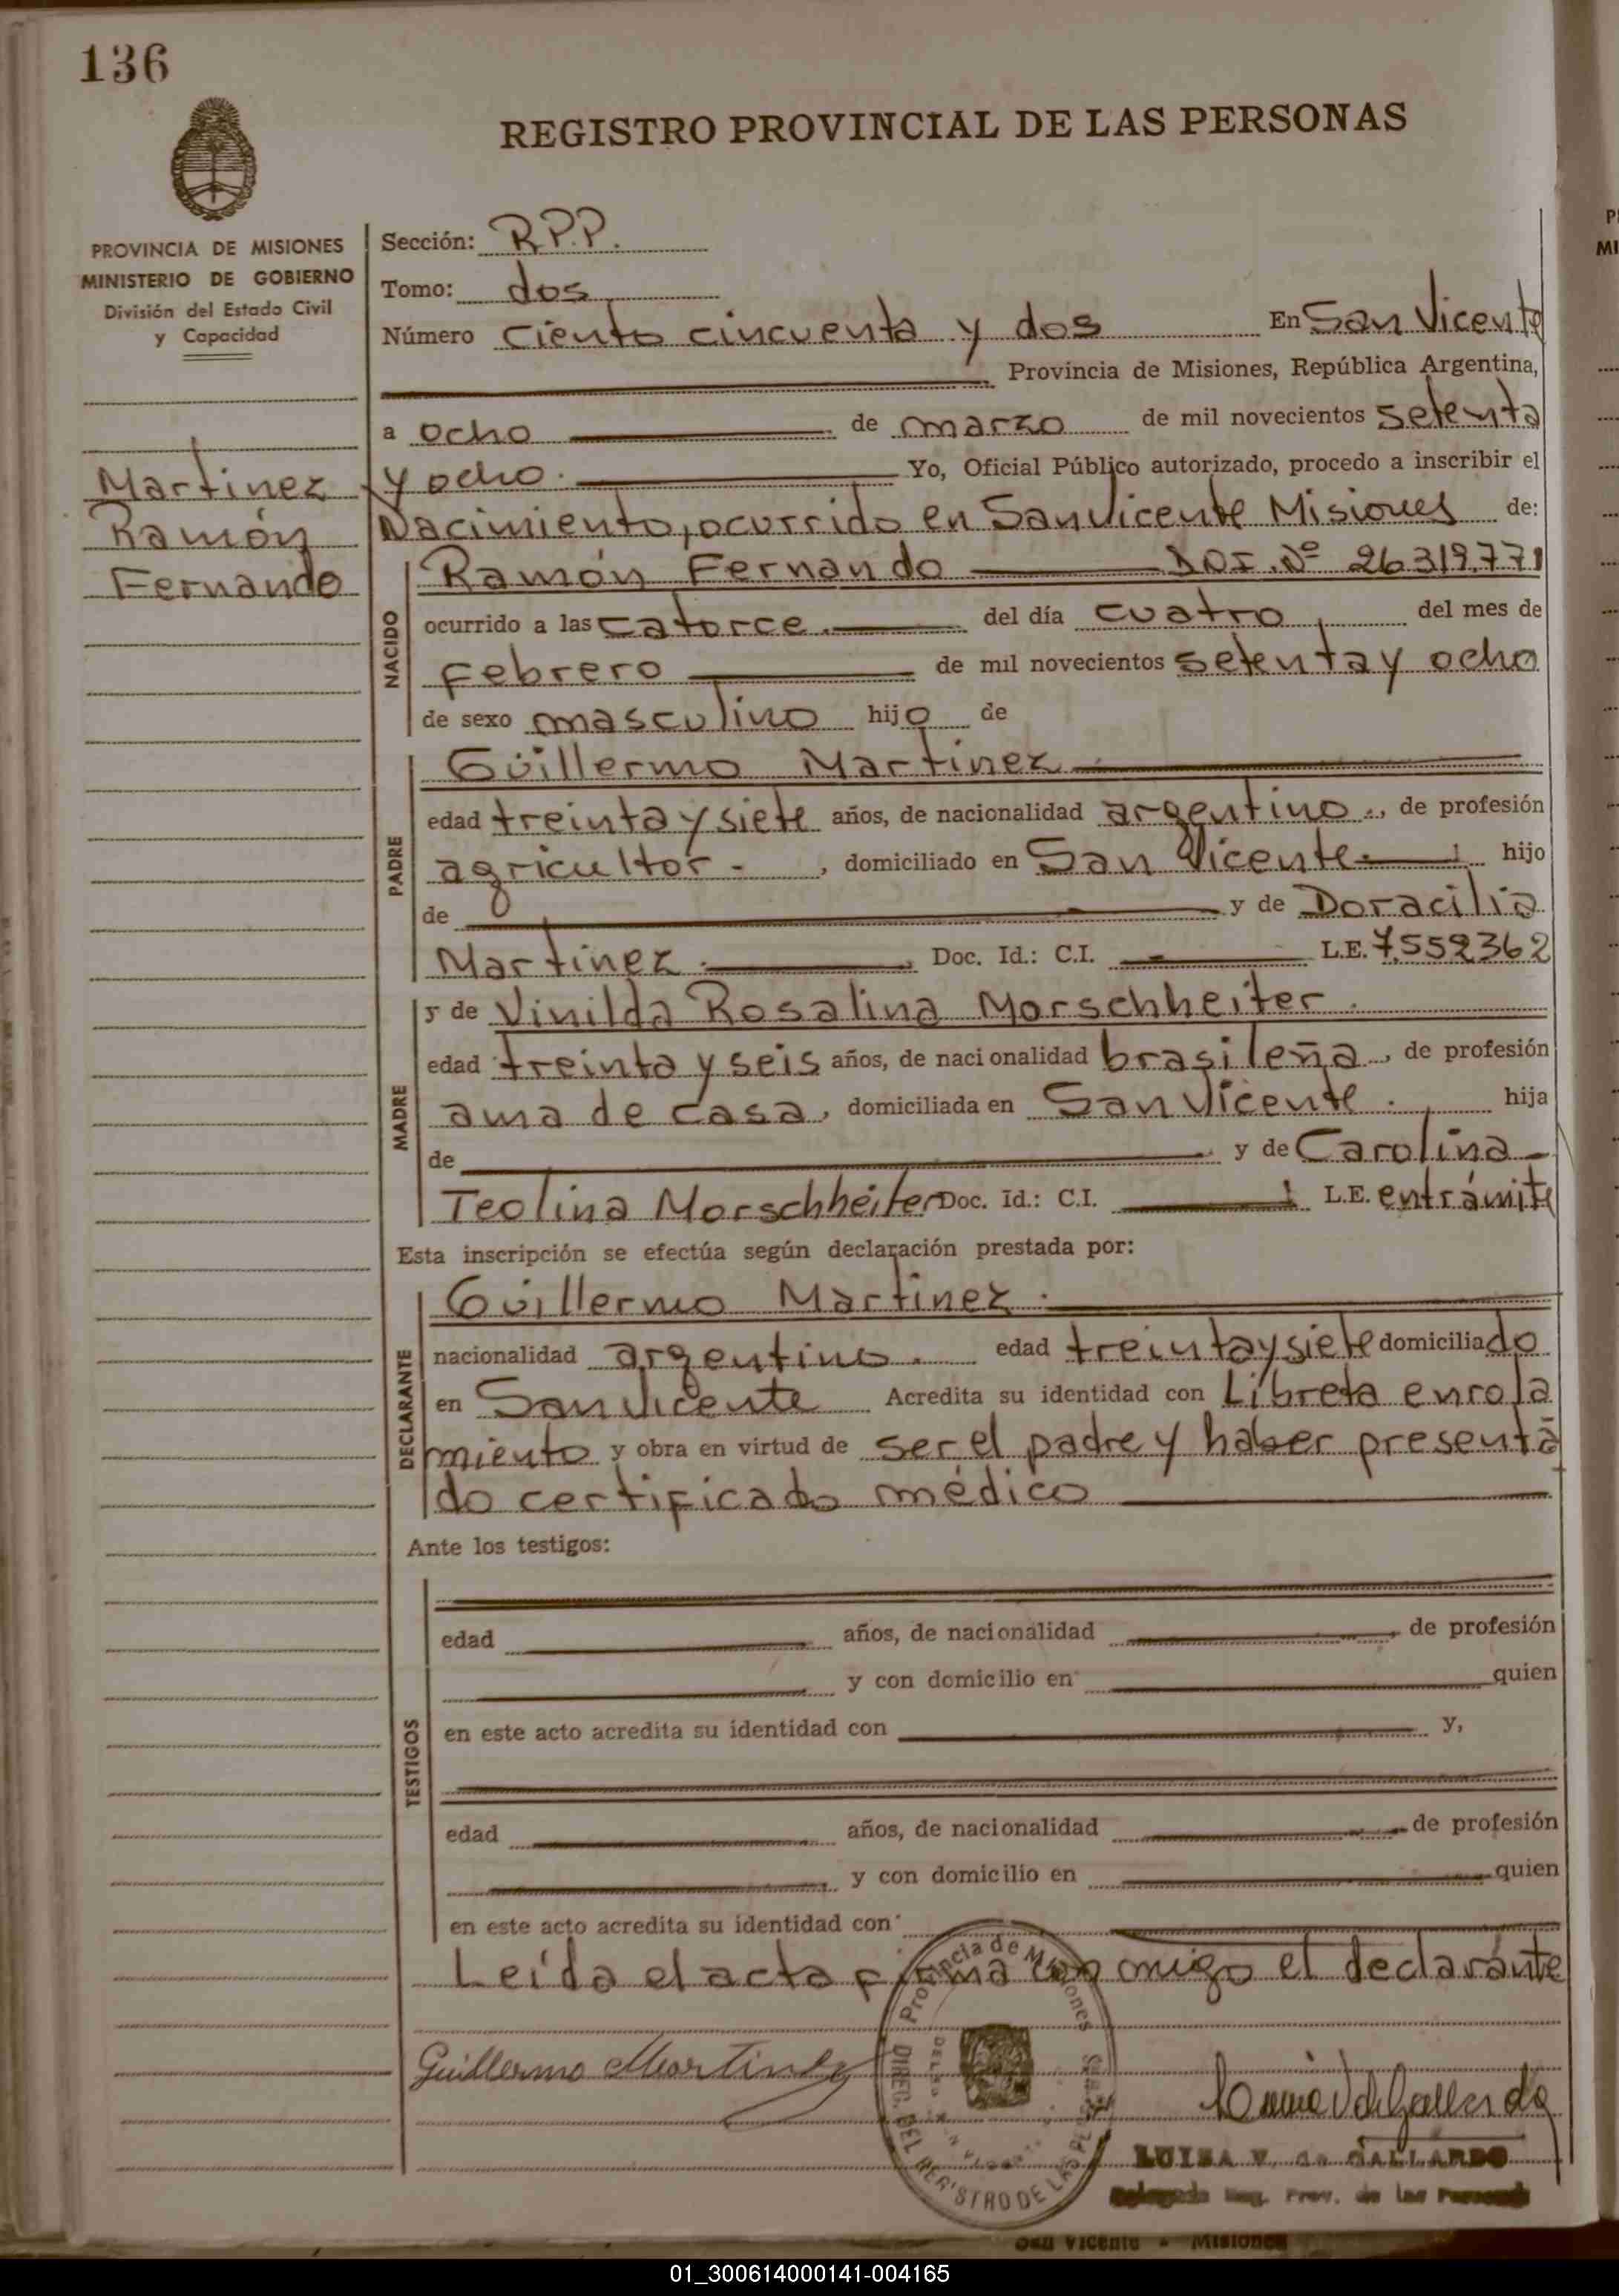 136
REGISTRO PROVINCIAL DE LAS PERSONAS
PROVINCIA DE MISIONES
MINISTERIO DE GOBIERNO
División del Estado Civil
y Capacidad
Martinez
Ramón
Fernando
Sección: R.P.P.
Tomo: dos
Número ciento cincuenta y dos En San Vicente
Provincia de Misiones, República Argentina,
a ocho de marzo de mil novecientos setenta
y ocho. Yo, Oficial Público autorizado, procedo a inscribir el
Nacimiento, ocurrido en San Vicente Misiones de:
NACIDO
Ramón Fernando D.N.I. Nº 26.319.771
ocurrido a las catorce. del día cuatro del mes de
Febrero de mil novecientos setenta y ocho
de sexo masculino hijo de
PADRE
Guillermo Martinez
edad treinta y siete años, de nacionalidad argentino., de profesión
agricultor. , domiciliado en San Vicente. hijo
de y de Doracilia
Martinez. Doc. Id.: C.I. L.E. 7.552362
MADRE
y de Vinilda Rosalina Morschheiter.
edad treinta y seis años, de nacionalidad brasileña., de profesión
ama de casa, domiciliada en San Vicente. hija
de y de Carolina
Teolina Morschheiter Doc. Id.: C.I. L.E. en trámite
Esta inscripción se efectúa según declaración prestada por:
DECLARANTE
Guillermo Martinez.
nacionalidad argentino. edad treinta y siete domiciliado
en San Vicente Acredita su identidad con Libreta enrola
miento y obra en virtud de ser el padre y haber presenta
do certificado médico
Ante los testigos:
TESTIGOS
edad años, de nacionalidad de profesión
y con domicilio en quien
en este acto acredita su identidad con y,
edad años, de nacionalidad de profesión
y con domicilio en quien
en este acto acredita su identidad con
Leída el acta firma con migo el declarante
Provincia de Misiones
DIREC. DEL REGISTRO DE LAS
Guillermo Martinez
LUISA V. de GALLARDO
Delegada Reg. Prov. de las Personas
San Vicente - Misiones
01_300614000141-004165